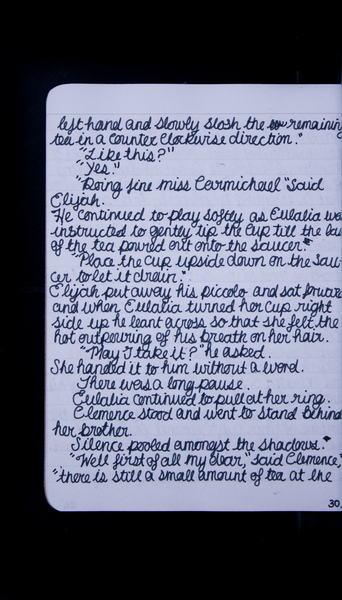 left hand and slowly slosh the remaining
tea in a counter clockwise direction."
"Like this?"
"Yes."
"Doing fine miss Carmichael" said
Elijah.
He continued to play softly as Eulalia was
instructed to gently tip the cup till the las
of the tea poured out onto the saucer.
"Place the cup upside down on the sau-
cer to let it drain."
Elijah put away his piccolo and sat
and when Eulalia turned her cup right
side up he leant across so that she felt the
hot outpouring of his breath on her hair.
"May I take it?" he asked.
She handed it to him without a word.
There was a long pause.
Eulalia continued to pull at her ring.
Clemence stood and went to stand behind
her brother.
Silence pooled amongst the shadows.
"Well first of all my dear," said Clemence,
"there is still a small amount of tea at the
30